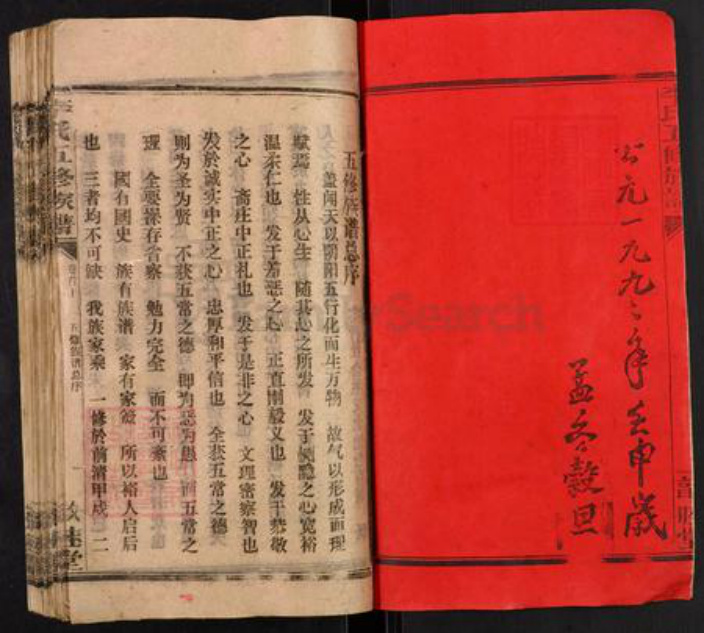 公元一九九二年壬申歲
孟冬穀旦
五修族谱总序
盖闻天以阴阳五行化而生万物 故气以形成而理
赋焉 性从心生 随其心之所发 发于恻隐之心宽裕
温柔仁也 发于羞恶之心 正直刚毅义也 发于恭敬
之心 斋庄中正礼也 发于是非之心 文理密察智也
发於诚实中正之心 忠厚和平信也 全获五常之德
则为圣为贤 不获五常之德 即为恶为愚 而五常之
理 全要操存省察 勉力完全 而不可紊也
國有國史 族有族谱 家有家谱 所以裕人启后
也 三者均不可缺 我族家乘 一修於前清甲戌 二
李氏五修族譜
五修族谱总序
MyFamilySearch